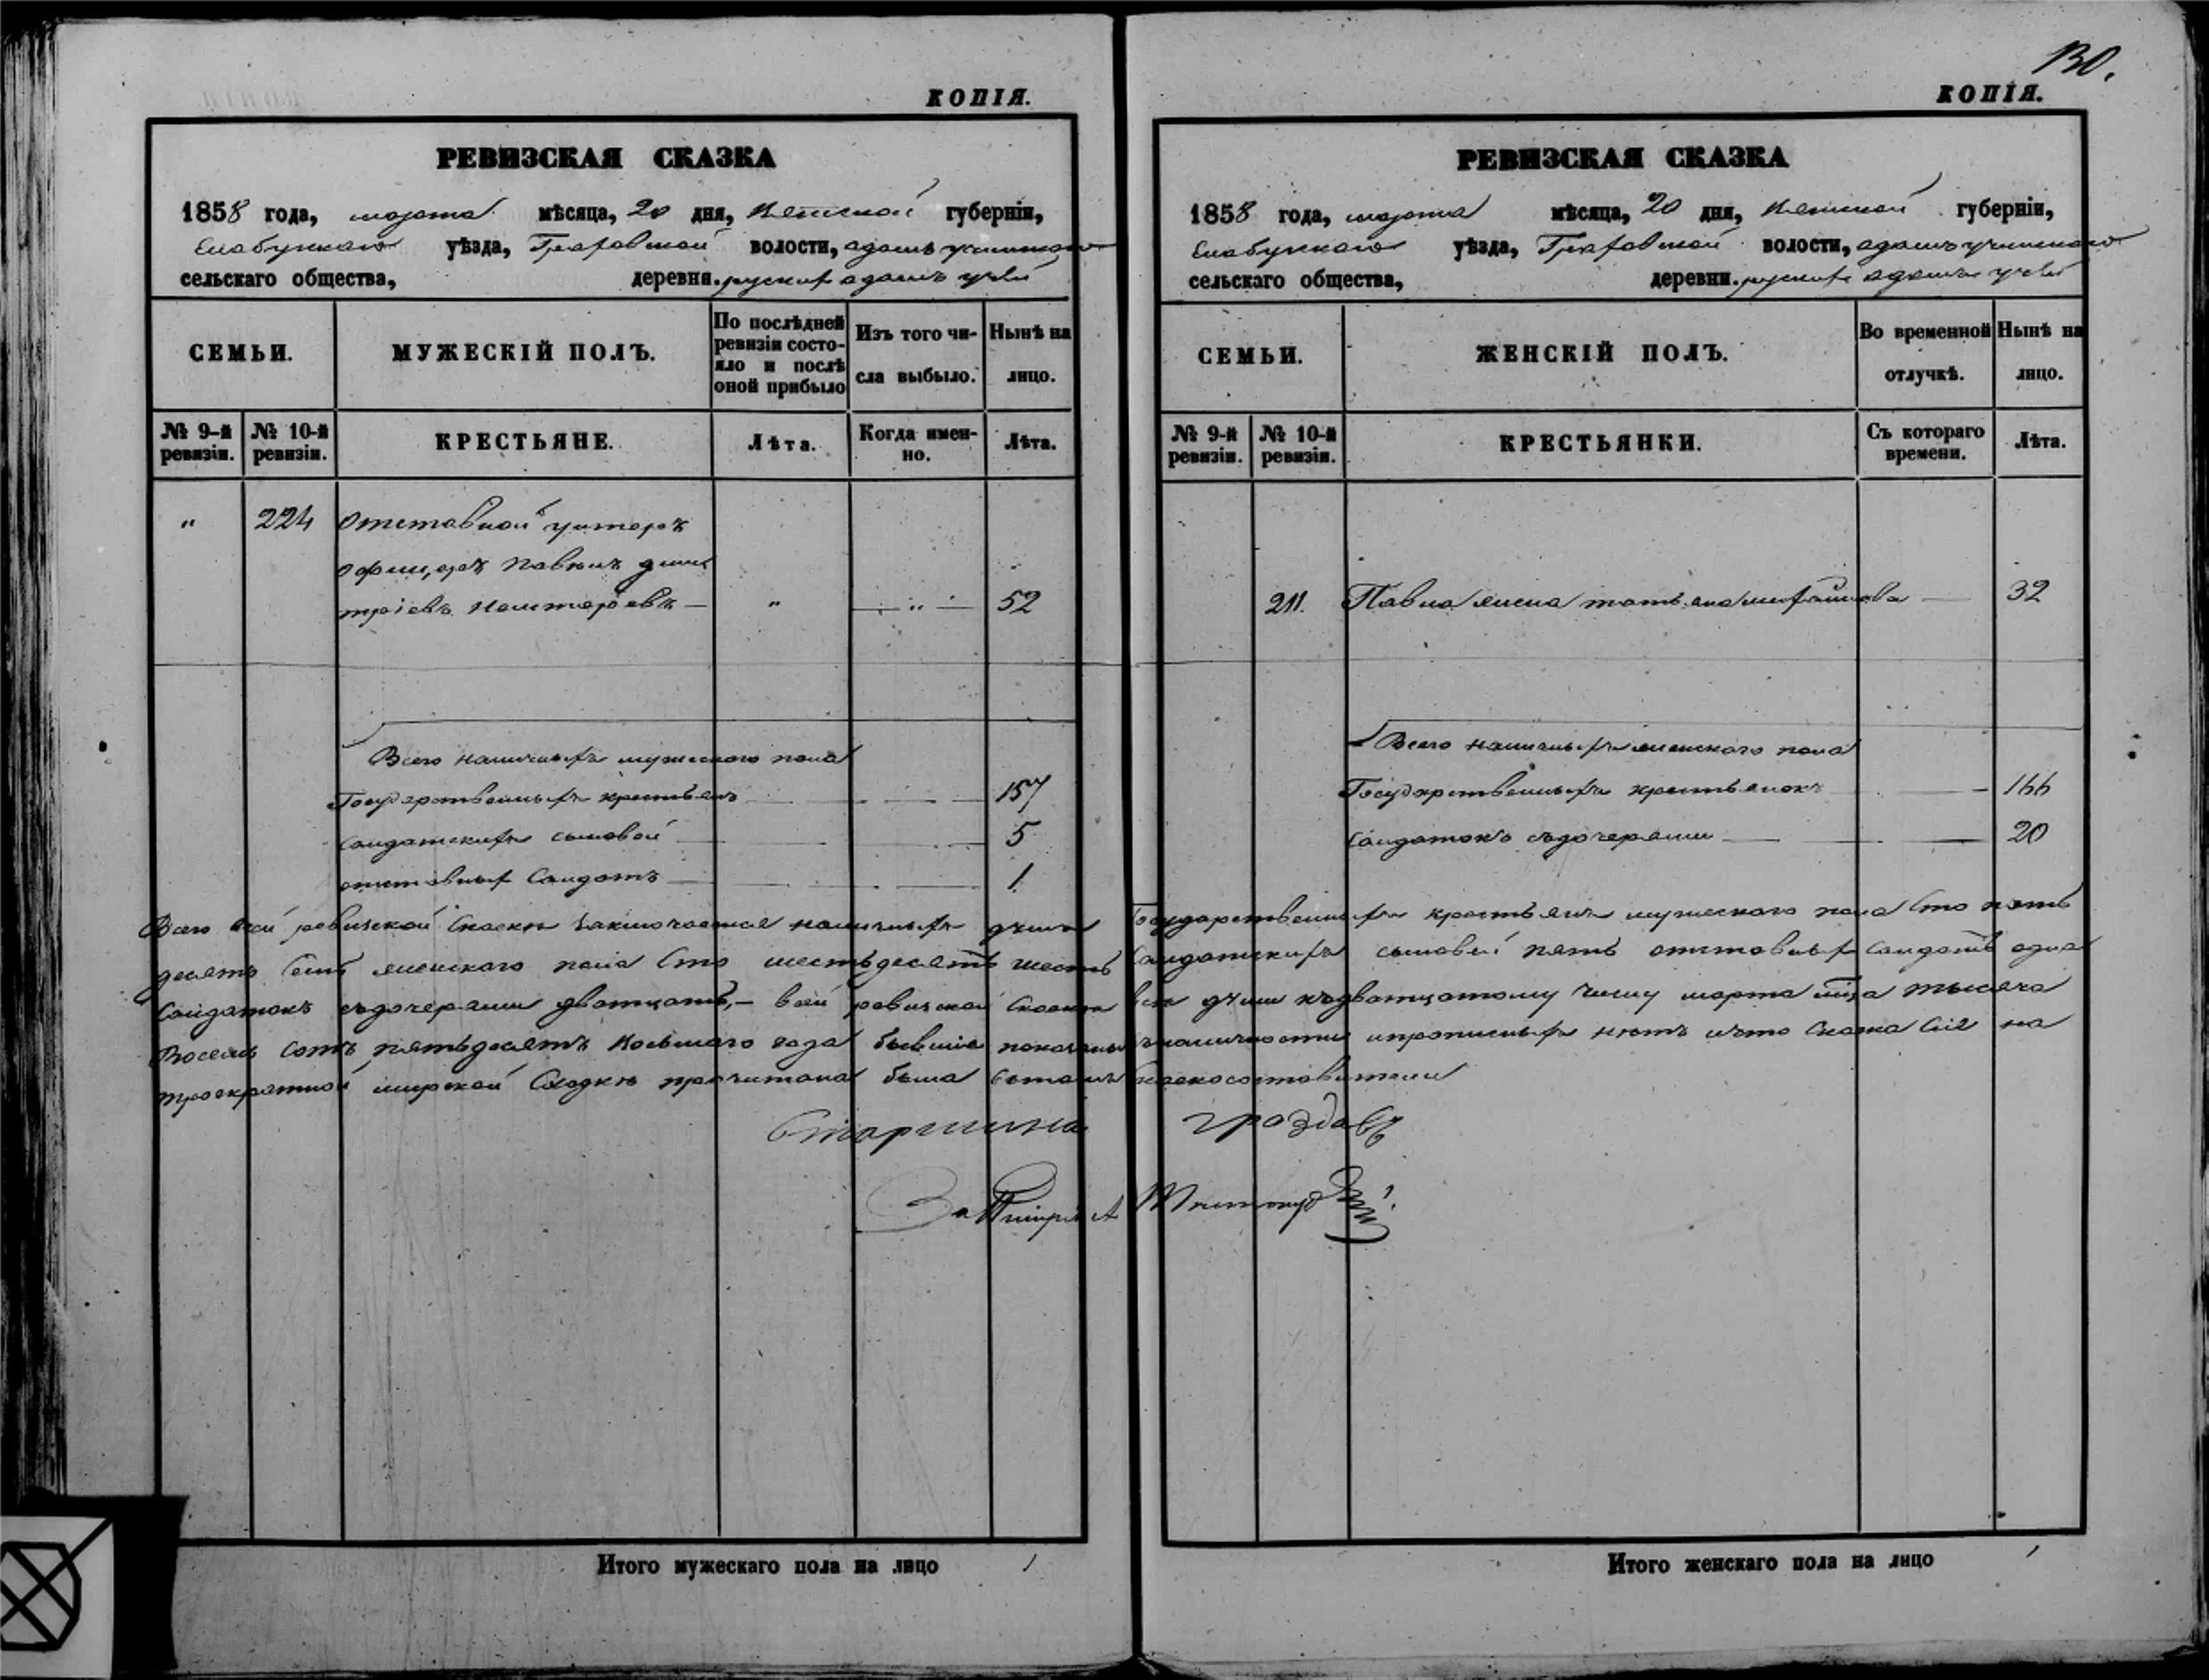 КОПІЯ.
РЕВИЗСКАЯ СКАЗКА
1858 года, марта мѣсяца, 20 дня, Вятской губерніи,
Елабужскаго уѣзда, Граховской волости, адамъ учинскаго
сельскаго общества, деревни. рускихъ адамъ учей
СЕМЬИ.
МУЖЕСКІЙ ПОЛЪ.
По послѣдней ревизіи состояло и послѣ оной прибыло
Изъ того числа выбыло.
Нынѣ на лицо.
№ 9-й ревизіи.
№ 10-й ревизіи.
КРЕСТЬЯНЕ.
Лѣта.
Когда именно.
Лѣта.
„ 224 Отставной унтеръ
офицеръ Павелъ Дми
тріевъ — „ — „ — 52
Всего наличныхъ мужескаго пола
Государственныхъ крестьянъ 157
Солдатскихъ сыновей 5
отставныхъ Солдатъ 1
130.
КОПІЯ.
РЕВИЗСКАЯ СКАЗКА
1858 года, марта мѣсяца, 20 дня, Вятской губерніи,
Елабужскаго уѣзда, Граховской волости, адамъ учинскаго
сельскаго общества, деревни. рускихъ адамъ учей
СЕМЬИ.
ЖЕНСКІЙ ПОЛЪ.
Во временной отлучкѣ.
Нынѣ на лицо.
№ 9-й ревизіи.
№ 10-й ревизіи.
КРЕСТЬЯНКИ.
Съ котораго времени.
Лѣта.
211. Павла жена татьяна михайлова — 32
Всего наличныхъ женскаго пола
Государственныхъ крестьянокъ — 166
Солдатокъ съдочерями — 20
Всего всей ревизской Сказкѣ заключается наличныхъ душъ Государственныхъ крестьянъ мужескаго пола Сто пять
десять семь женскаго пола Сто шестьдесятъ шесть Солдатскихъ сыновей пять отставныхъ Солдатъ одна
Солдатокъ съдочерями дватцать, — всей ревизской Сказкѣ всѣ души къдватцатому числу марта мѣца тысяча
Восемь Сотъ пятьдесятъ Восьмаго года бывшіе показаны въналичности ипрописныхъ нѣтъ ичто Сказка Сія на
троекратной мирской Сходкѣ прочитана была
Старшина
Итого мужескаго пола на лицо 1
Итого женскаго пола на лицо 1